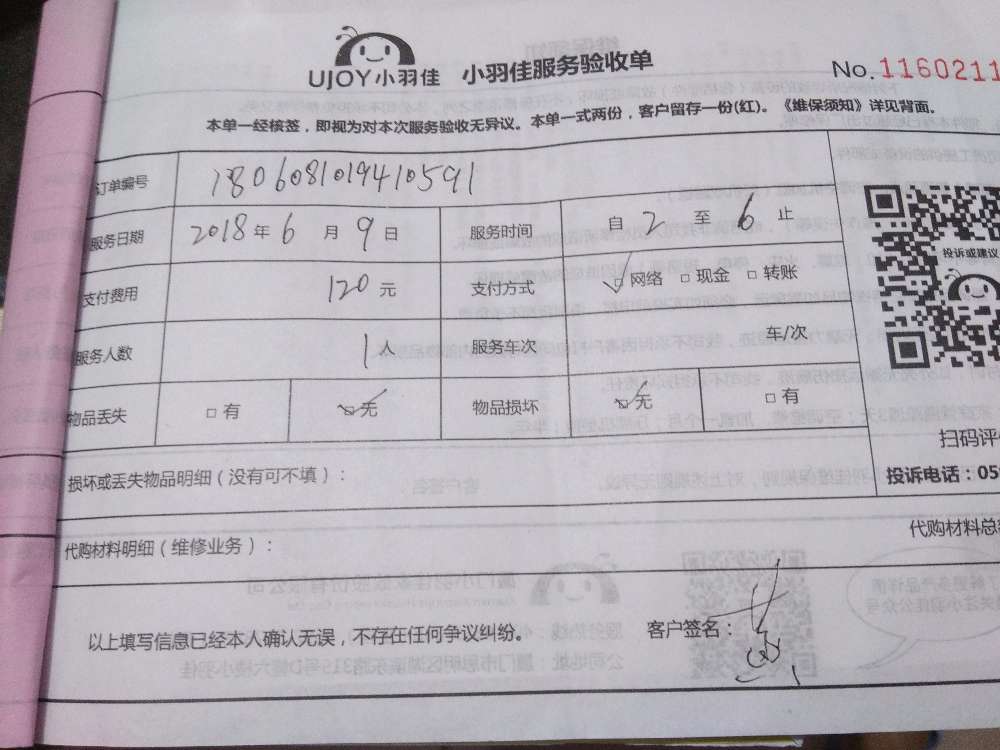 UJOY小羽佳 小羽佳服务验收单 No. 1160211
本单一经核签，即视为对本次服务验收无异议。本单一式两份，客户留存一份(红)。《维保须知》详见背面。
订单编号 1806081019410591
服务日期 2018年6月9日 服务时间 自2至6止
支付费用 120元 支付方式 网络 现金 转账
服务人数 1 服务车次 车/次
物品丢失 有 无 物品损坏 无 有
投诉或建议
扫码评
投诉电话：05
损坏或丢失物品明细（没有可不填）：
代购材料明细（维修业务）： 代购材料总
以上填写信息已经本人确认无误，不存在任何争议纠纷。 客户签名：